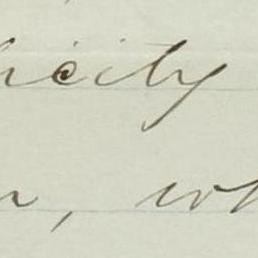 icity
n, wh